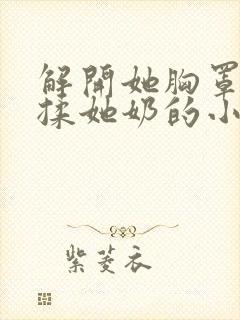 解開她胸罩
揉她奶的小
紫菱衣